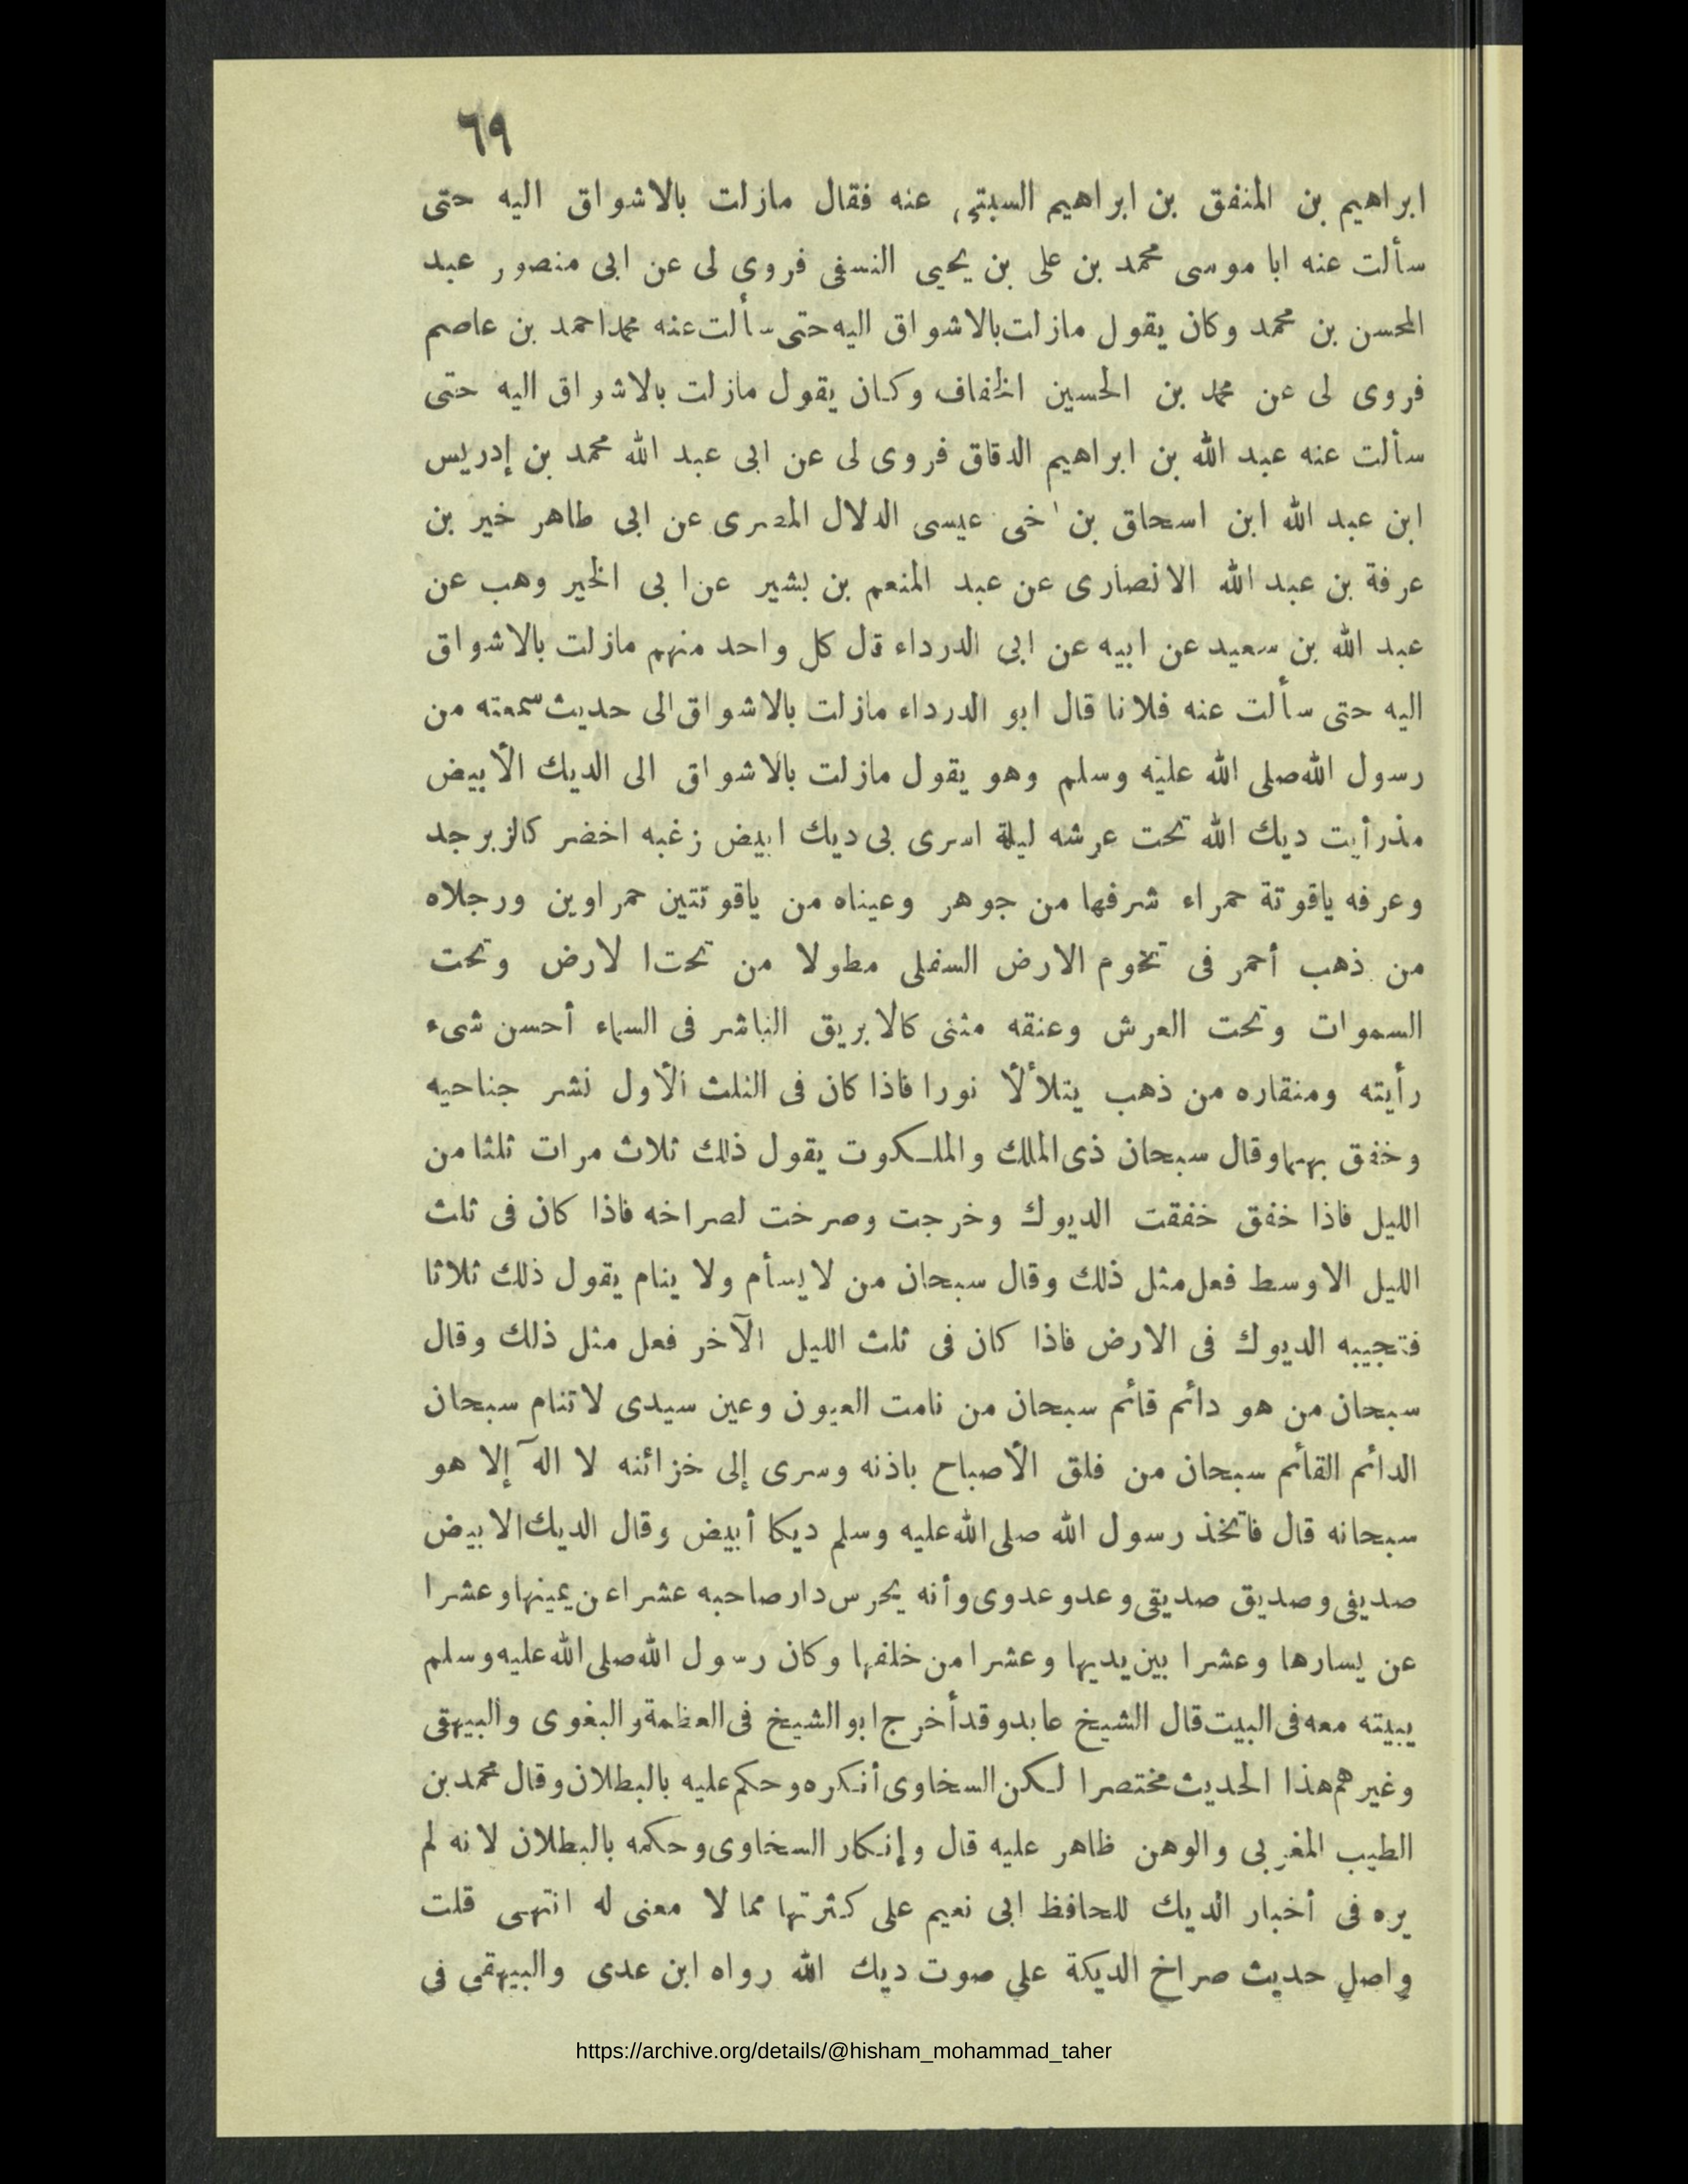 ٦٩
ابراهيم بن المنفق بن ابراهيم السبتي عنه فقال مازلت بالاشواق اليه حتى
سألت عنه ابا موسى محمد بن على بن يحيى النسفى فروى لى عن ابى منصور عبد
المحسن بن محمد وكان يقول مازلت بالاشواق اليه حتى سألت عنه محمد احمد بن عاصم
فروى لى عن محمد بن الحسين الخفاف وكان يقول مازلت بالاشواق اليه حتى
سألت عنه عبد الله بن ابراهيم الدقاق فروى لى عن ابى عبد الله محمد بن إدريس
ابن عبد الله ابن اسحاق بن اخى عيسى الدلال المصرى عن ابى طاهر خير بن
عرفة بن عبد الله الانصارى عن عبد المنعم بن بشير عن ابى الخير وهب عن
عبد الله بن سعيد عن ابيه عن ابى الدرداء قال كل واحد منهم مازلت بالاشواق
اليه حتى سألت عنه فلانا قال ابو الدرداء مازلت بالاشواق الى حديث سمعته من
رسول الله صلى الله عليه وسلم وهو يقول مازلت بالاشواق الى الديك الأبيض
مذ رأيت ديك الله تحت عرشه ليلة اسرى بى ديك ابيض زغبه اخضر كالزبرجد
وعرفه ياقوتة حمراء شرفها من جوهر وعيناه من ياقوتتين حمراوين ورجلاه
من ذهب أحمر فى تخوم الارض السفلى مطولا من تحت الارض وتحت
السموات وتحت العرش وعنقه مثنى كالابريق الناشر فى السماء أحسن شىء
رأيته ومنقاره من ذهب يتلألأ نورا فاذا كان فى الثلث الأول نشر جناحيه
وخفق بهما وقال سبحان ذى الملك والملكوت يقول ذلك ثلاث مرات ثلثا من
الليل فاذا خفق خفقت الديوك وخرجت وصرخت لصراخه فاذا كان فى ثلث
الليل الاوسط فعل مثل ذلك وقال سبحان من لا يسأم ولا ينام يقول ذلك ثلاثا
فتجيبه الديوك فى الارض فاذا كان فى ثلث الليل الآخر فعل مثل ذلك وقال
سبحان من هو دائم قائم سبحان من نامت العيون وعين سيدى لا تنام سبحان
الدائم القائم سبحان من فلق الأصباح باذنه وسرى إلى خزائنه لا اله إلا هو
سبحانه قال فاتخذ رسول الله صلى الله عليه وسلم ديكا أبيض وقال الديك الابيض
صديقى وصديق صديقى وعدو عدوى وأنه يحرس دار صاحبه عشرا عن يمينها وعشرا
عن يسارها وعشرا بين يديها وعشرا من خلفها وكان رسول الله صلى الله عليه وسلم
يبيته معه فى البيت قال الشيخ عابد وقد أخرج ابو الشيخ فى العظمة والبغوى والبيهقى
وغيرهم هذا الحديث مختصرا لكن السخاوى أنكره وحكم عليه بالبطلان وقال محمد بن
الطيب المغربى والوهن ظاهر عليه قال وإنكار السخاوى وحكمه بالبطلان لانه لم
يره فى أخبار الديك للحافظ ابى نعيم على كثرتها مما لا معنى له انتهى قلت
واصل حديث صراخ الديكة على صوت ديك الله رواه ابن عدى والبيهقى فى
https://archive.org/details/@hisham_mohammad_taher